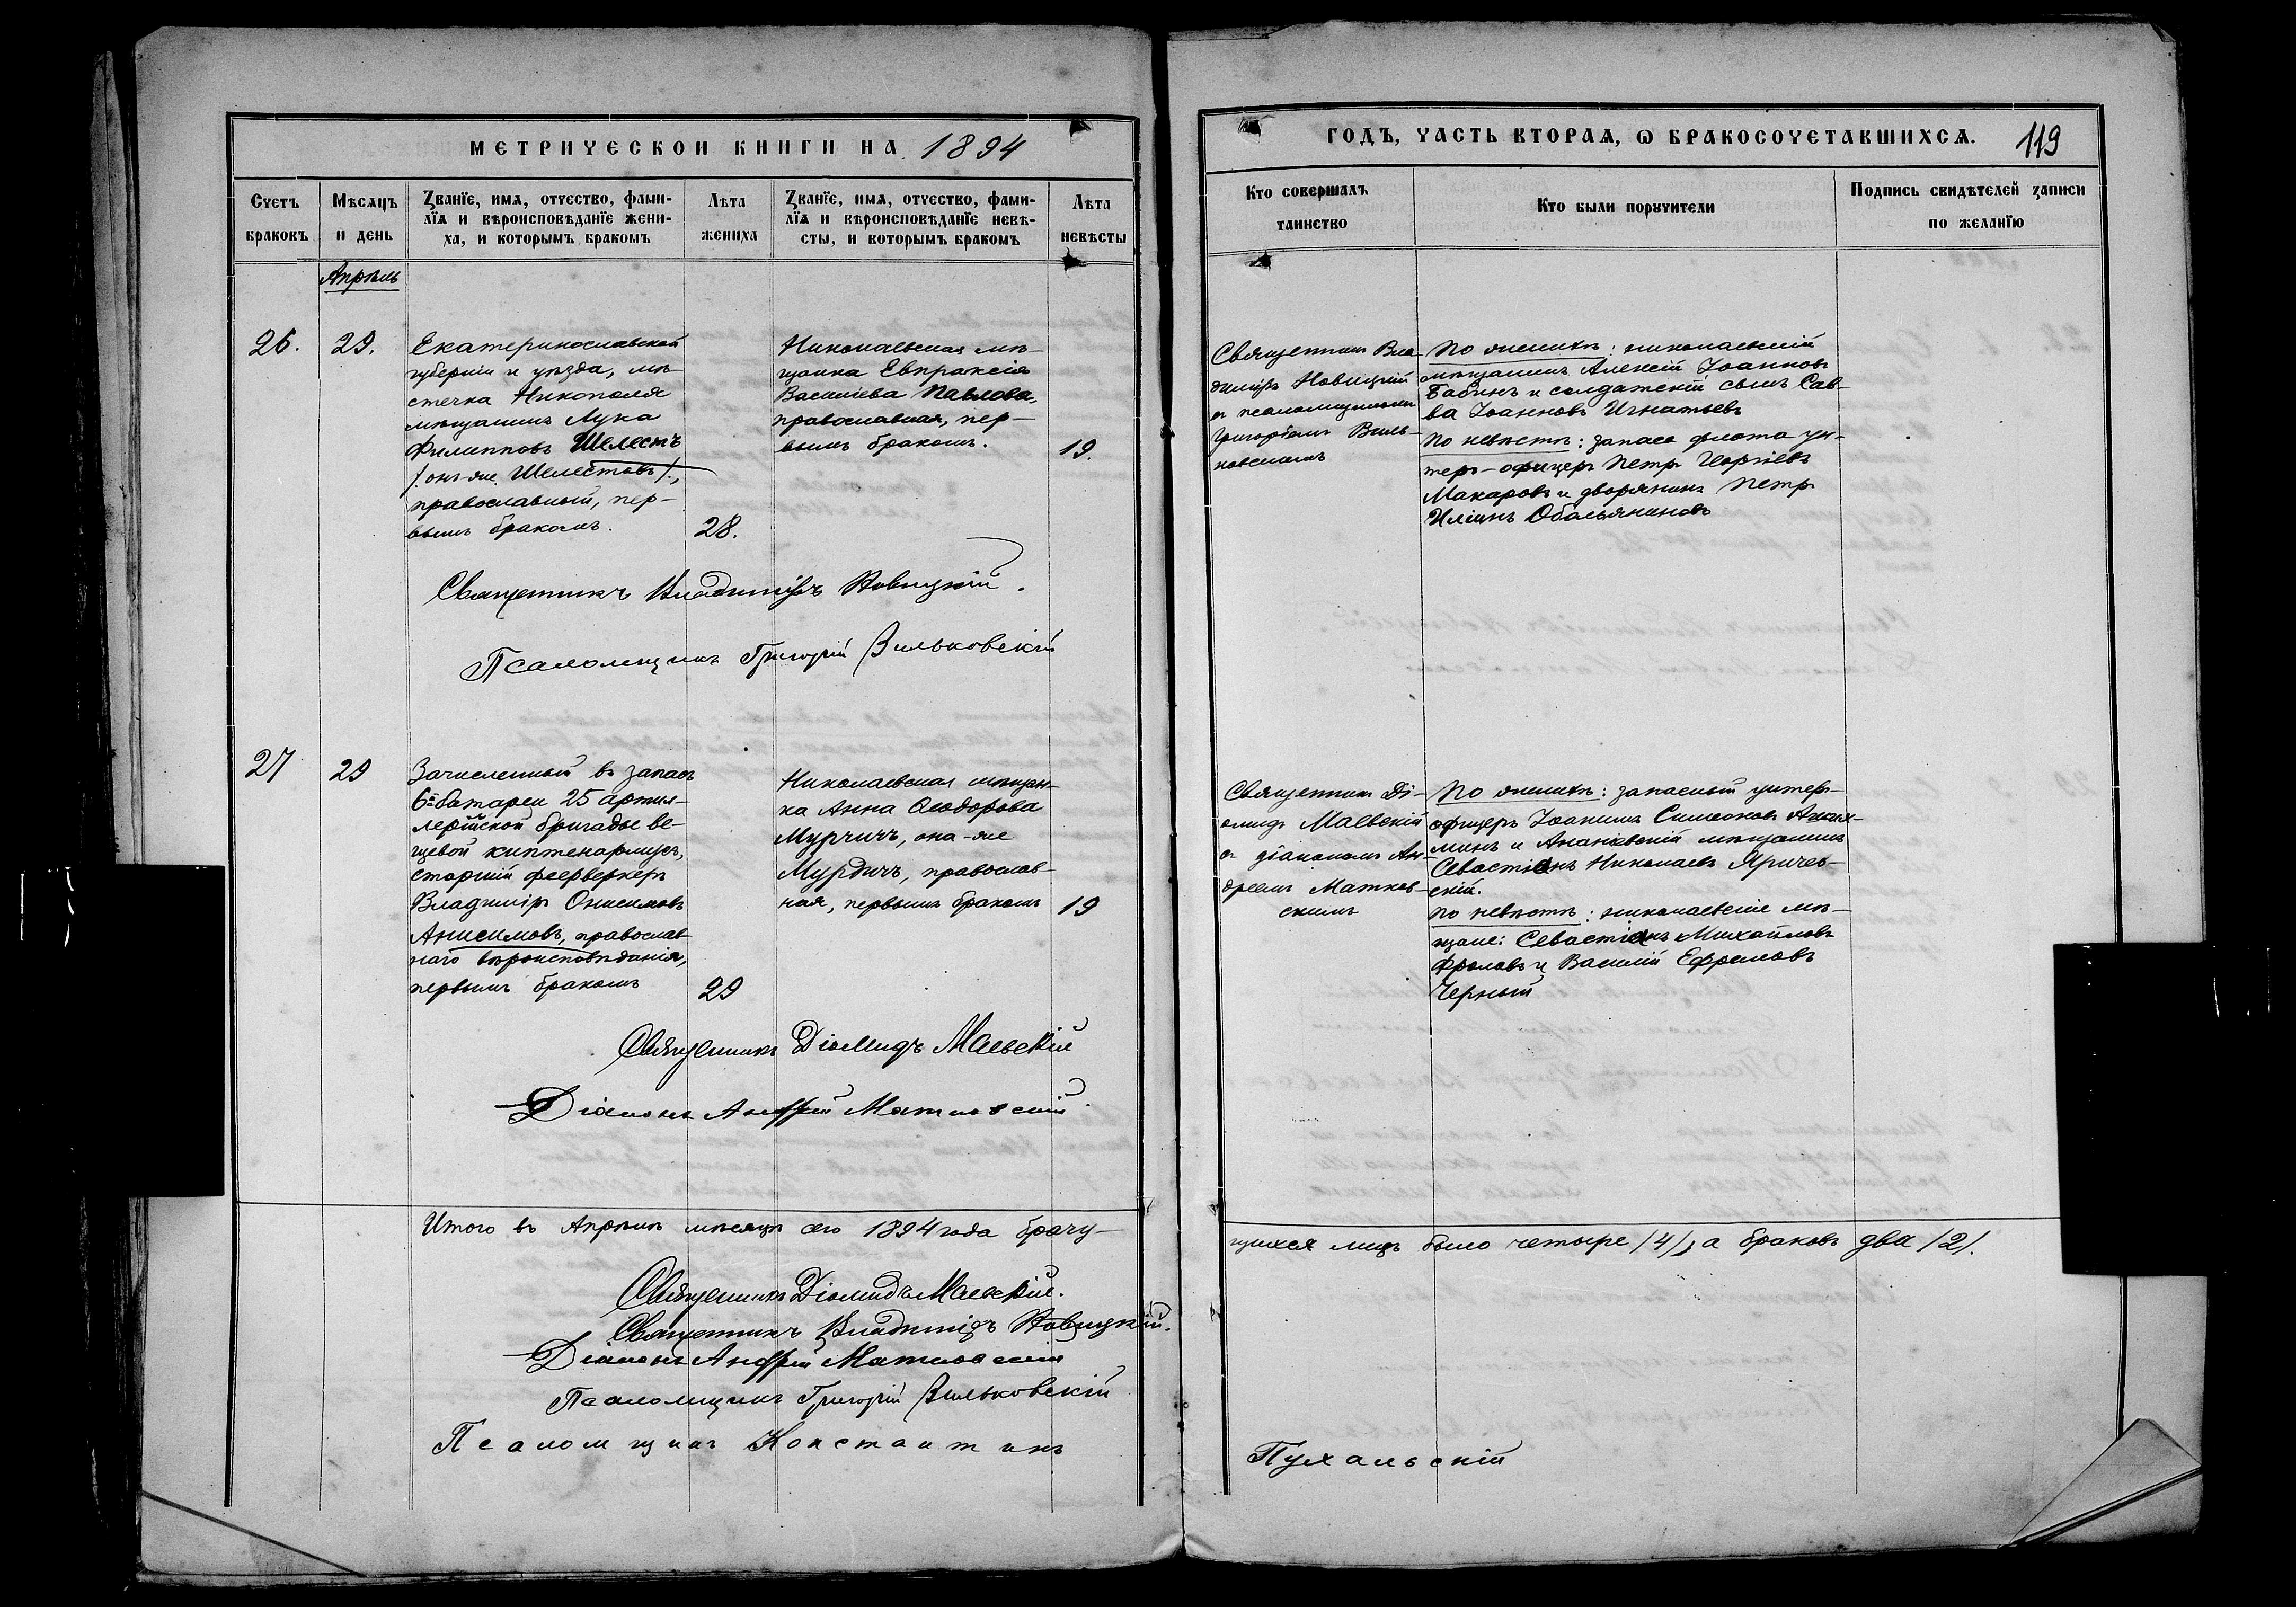 МЕТРИЧЕСКОИ КНИГИ НА 1894
ГОДЪ, ЧАСТЬ ВТОРАЯ, Ѡ БРАКОСОЧЕТАВШИХСЯ. 119
Счетъ браковъ
Мѣсяцъ и день
Званіе, имя, отчество, фами-
лія и вѣроисповѣданіе жени-
ха, и которымъ бракомъ
Лѣта жениха
Званіе, имя, отчество, фами-
лія и вѣроисповѣданіе невѣ-
сты, и которымъ бракомъ
Лѣта невѣсты
Кто совершалъ
таинство
Кто были поручители
Подпись свидѣтелей записи
по желанію
Апрѣль
26.
29.
Екатеринославской
губерніи и уѣзда, мѣ-
стечка Никополя
мѣщанинъ Лука
Филипповъ Шелестъ
/онъ-же Шелестовъ/,
православный, пер-
вымъ бракомъ.
28.
Николаевская мѣ-
щанка Евпраксія
Василіева Павлова,
православная, пер-
вымъ бракомъ.
19.
Священникъ Вла-
диміръ Новицкій
съ псаломщикомъ
Григоріемъ Виль-
ковскимъ
По женихѣ: николаевскій
мѣщанинъ Алексій Іоанновъ
Бабинъ и солдатскій сынъ Сав-
ва Іоанновъ Игнатьевъ
По невѣстѣ: запаса флота ун-
теръ-офицеръ Петръ Георгіевъ
Макаровъ и дворянинъ Петръ
Иліинъ Обольяниновъ
Священникъ Владиміръ Новицкій.
Псаломщикъ Григорій Вильковскій
27
29
Зачисленный въ запасъ
6й батареи 25 артил-
лерійской бригады ве-
щевой каптенармусъ,
старшій феерверкеръ
Владиміръ Онисимовъ
Анисимовъ, православ-
наго вѣроисповѣданія,
первымъ бракомъ
29
Николаевская мѣщан-
ка Анна Ѳеодорова
Мурчичъ, она-же
Мурдичъ, православ-
ная, первымъ бракомъ
19
Священникъ Ді-
омидъ Маевскій
съ діакономъ Ан-
дреемъ Матков-
скимъ
По женихѣ: запасный унтеръ-
офицеръ Іоаннъ Симеоновъ
и Ананіевскій мѣщанинъ
Севастіанъ Николаевъ Яричев-
скій.
По невѣстѣ: николаевскіе мѣ-
щане: Севастіанъ Михайловъ
Фроловъ и Василій Ефремовъ
Черный
Священникъ Діомидъ Маевскій
Діаконъ Андрей Матковскій
Итого въ Апрѣлѣ мѣсяцѣ сего 1894 года брачу-
щихся лицъ было четыре /4/, а браковъ два /2/.
Священникъ Діомидъ Маевскій.
Священникъ Владиміръ Новицкій.
Діаконъ Андрей Матковскій
Псаломщикъ Григорій Вильковскій
Псаломщикъ Константинъ Пухальскій